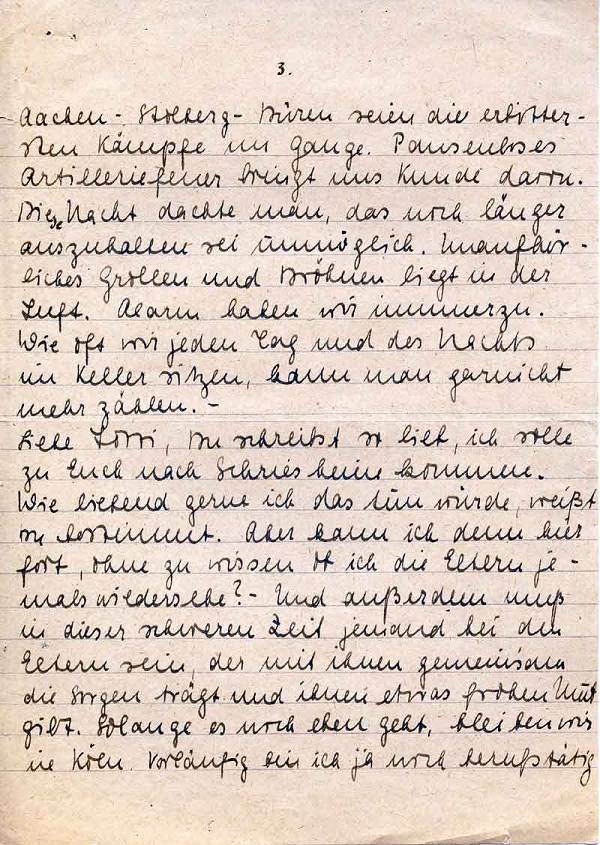 3.
Aachen - Stolberg - Düren seien die erbitter-
sten Kämpfe im Gange. Pausenloses
Artilleriefeuer bringt uns Kunde davon.
Diese Nacht dachte man, das noch länger
auszuhalten sei unmöglich. Unaufhör-
liches Grollen und Dröhnen liegt in der
Luft. Alarm haben wir immerzu.
Wie oft wir jeden Tag und des Nachts
im Keller sitzen, kann man garnicht
mehr zählen. -
Liebe Lotti, Du schreibst so lieb, ich solle
zu Euch nach Schriesheim kommen.
Wie liebend gerne ich das tun würde, weißt
Du bestimmt. Aber kann ich denn hier
fort, ohne zu wissen ob ich die Eltern je-
mals wiedersehe? - Und außerdem muß
in dieser schweren Zeit jemand bei den
Eltern sein, der mit ihnen gemeinsam
die Sorgen trägt und ihnen etwas frohen Mut
gibt. Solange es noch eben geht, bleiben wir
in Köln. Vorläufig bin ich ja noch berufstätig